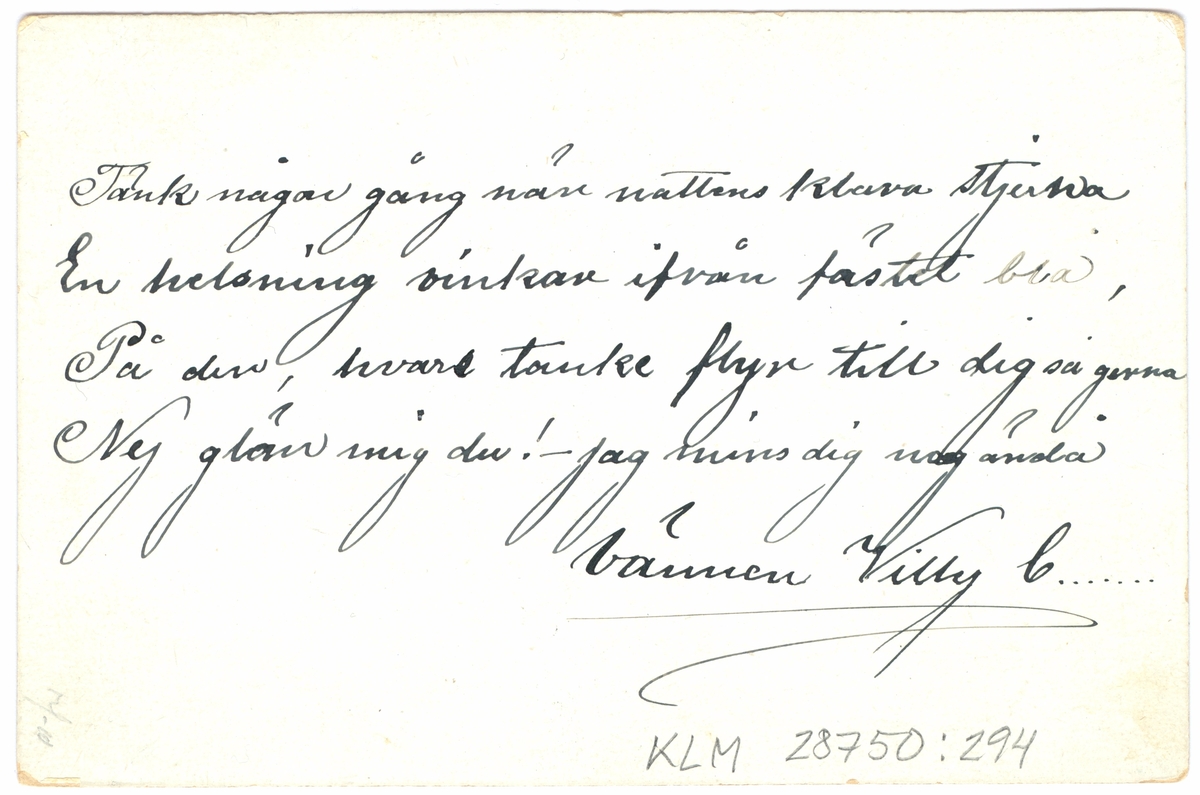 Tänk någon gång när nattens klara stjerna
En helsning vinkar ifrån fästet blå,
På den, hvars tanke flyr till dig så gerna
Nej glöm mig du! – jag mins dig nog ändå
Vännen Villy C.......
KLM 28750:294